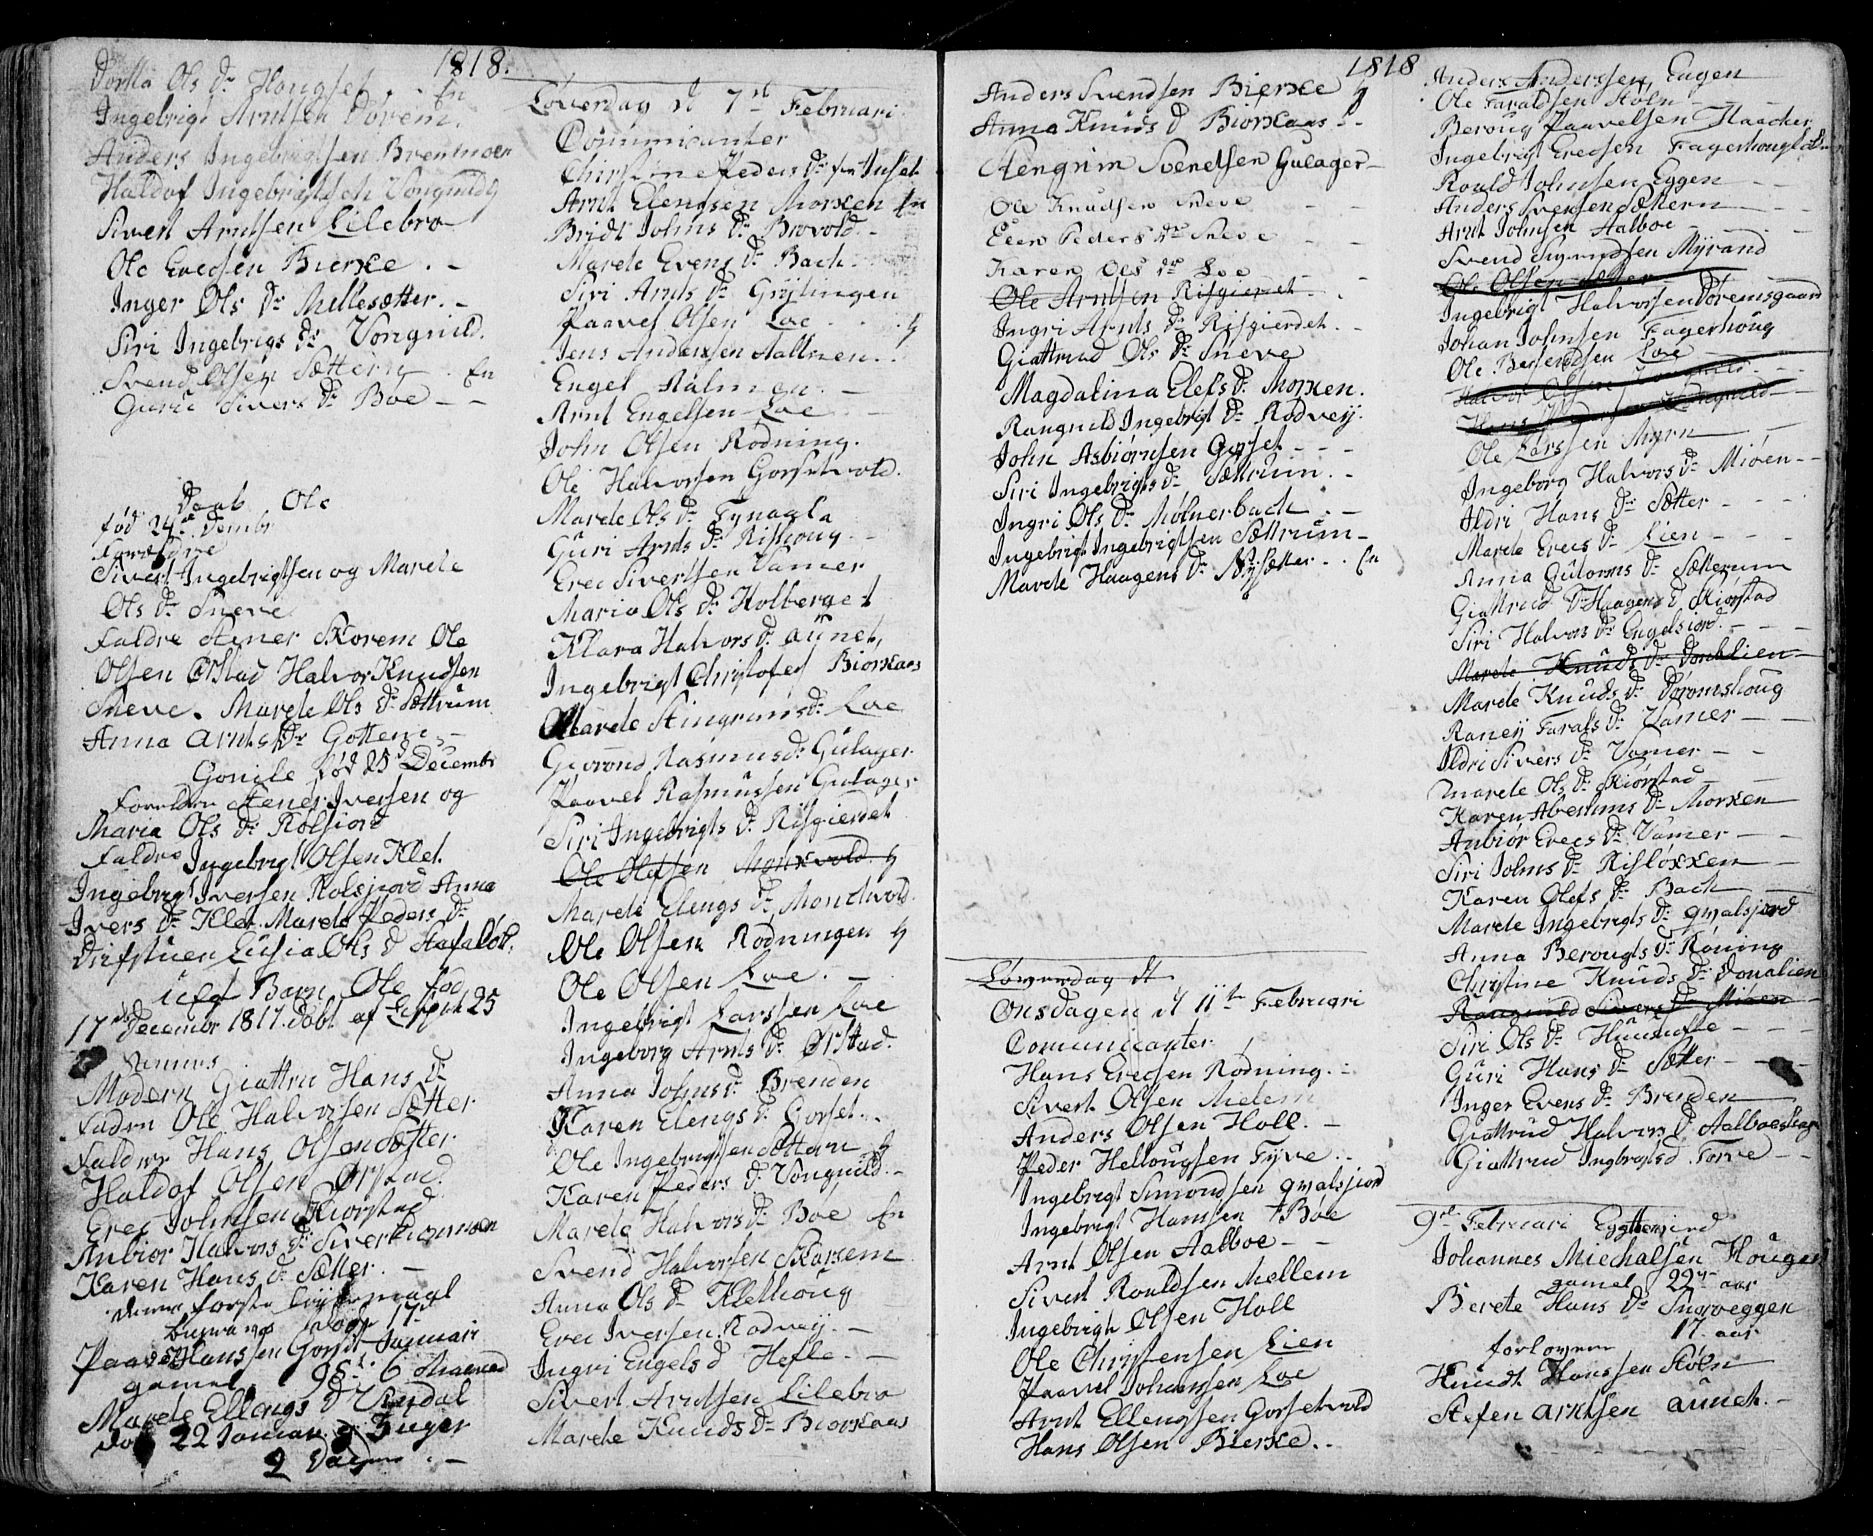 1818.
Ols Dr Hougset . . En
Ingebrigt Arntsen Dörem.
Anders Ingebrigtsen Brenmoen
Haldof Ingebrigtsen Vongnild
Sivert Arntsen Lilebro
Ole Erecsen Bierke . -
Inger Ols Dr Mellesætter. -
Siri Ingebrigs Dr Vongnild.
Svend Olsen Sættern . En
Guru Sivers Dr Boe - -
Daab Ole
fød 24de Dembr
Forældre
Sivert Ingebrigtsen og Marete
Ols Dr Sneve
Faldre Stener Skorem Ole
Olsen Ørstad Halvor Knudsen
Sneve. Marete Ols Dr Sættrum
Anna Arnts Dr Gottem -
Gonile fød 25d Decembr
Forældre Stener Iversen og
Maria Ols Dr Rolsiord
Faldre Ingebrigt Olsen Klet.
Ingebrigt Iversen Rolsjord Anna
Ivers Dr Klet. Marete Peders Dr
Drifstuen Lusia Ols D
uegt Barn Ole fød
17de Decembr 1817. Døbt af 25
Modern Giattru Hans Dr
Fadern Ole Halvorsen Sætter
Faldre Hans Olsen Sætter
Haldof Olsen Ørstad.
Erec Johnsen Skiorstad
Anbior Halvors Dr
Karen Hans Dr Sætter. -
denne første
17d
Paavel Hanssen Gorset Januari
gamel 98t. 6 Maaned
Marete Ellengs D Vindal
22 Januari. 3 Uger
2 Dager . -
Løverdag d 7de Februari
Communicanter
Christine Peders Dr Inset
Arnt Elengsen Morken En
Bridt Johns Dr Brovold. -
Marete Evens Dr Bach.
Siri Arnts Dr Grytingen
Paavel Olsen Loe . . . 4
Jens Andersen Aalmen . .
Engel Aalmen . -
Arnt Engelsen Loe - -
John Olsen Rodning.
Ole Halvorsen Gorsetvold.
Marete Ols Dr Fynagla
Guri Arnts Dr Rishoug . -
Erec Sivertsen Vamer
Maria Ols Dr Holberget
Klara Halvors Dr Aunet,
Ingebrigt Christofers Biorkaas
Marete Stingrims Dr Loe
Rasmus Dr Gulager.
Paavel Rasmussen Gulager
Siri Ingebrigts Dr Risgierdet
Ole Olefsen Monkvold 4
Marete Elengs Dr Monckvold.
Ole Olsen Rodningen 4
Ole Olsen Loe . -
Ingebrigt Larssen Loe
Ingeborg Arnts Dr Ørstad.
Anna Johns Dr Brenden
Karen Elengs Dr Gorset. .
Ole Ingebrigtsen Sættern 4
Karen Peders Dr Vongnild. -
Marete Halvors Dr Boe En
Svend Halvorsen Skorem
Anna Ols Dr Klethoug
Erec Iversen Rodvej. -
Ingri Engels D Hefle. -
Sivert Arntsen Lilebro
Marete Knuds Dr Biorkaas
1818
Anders Svendsen Bierke 4
Anna Knuds D Biorkaas - -
Stengrim Svendsen Gulager -
Ole Knudsen Sneve - -
Elen Peders Dr Sneve - -
Karen Ols Dr Loe - -
Ole Arntsen Risgierdet -
Ingri Arnts Dr Risgierdet . -
Giattrud Ols Dr Sneve
Magdalina Elefs Dr Morken.
Rangnild Ingebrigt Dr Rodvej.
John Asbiørnsen Gorset - - -
Siri Ingebrigts Dr Sættrum . -
Ingri Ols Dr Molnerbach . -
Ingebrigt Ingebrigtsen Sættrum -
Marete Haagens Dr Nysætter . . En
Løverdag d
Onsdagen d 11te Februari
Comunicanter
Hans Erecsen Rodning. -
Sivert Olsen Melem
Anders Olsen Holl. -
Peder Hellougsen Fyve. -
Ingebrigt Simondsen Qvalsjord
Ingebrigt Hanssen Boe
Arnt Olsen Aalboe - -
Sivert Rouldsen Mellem
Ingebrigt Olsen Holl
Ole Christensen Lien
Paavel Johanssen Loe
Arnt Ellengsen Gorsetvold
Hans Olsen Bierke. .
Anders Anderssen Engen
Ole Faraldsen Stöln - -
Beroug Paavelsen Haacker
Ingebrigt Erecsen
Roald Johnsen Eggen - -
Anders Svensen Sættern - -
Arnt Johnsen Aalboe - -
Svend Myrand
Ole Olsen Sætter
Ingebrigt Halvorsen Döremsgaard
Johan Johnsen Fagerhoug
Ole Berendsen Loe -
Halvor Olsen Vongnild - -
Hans Vongnild -
Ole Larssen Myrn - -
Ingeborg Halvors Dr Mioen - -
Ildri Hans Dr Sætter -
Marete Erecs Dr Lien - - -
Anna Gutorms Dr Sætterum
Giattrud Dr Haagens D Skiorstad
Siri Halvors Dr Engelsjord - - -
Marete Knuds Dr Donklien -
Marete Knuds Dr Döremshoug
Ranej Farals Dr Vamer - -
Ildri Sivers Dr Vamer - -
Marete Ols Dr Skiorstad - -
Karen Abrams Dr Morken
Anbior Erecs Dr Vamer - -
Siri Johns Dr Risløkken - -
Karen Olefs Dr Bach - -
Marete Ingebrigts Dr Qvalsjord
Anna Berougs Dr Röning
Christine Knuds Dr Donalien
Rangnild Sivers Dr Mioen -
Siri Ols Dr - -
Guri Hans Dr Sætter - -
Inger Evens Dr Brenden
Giattrud Halvors D
Giattrud Ingbrigts D Torve -
9de Februari
Johannes Michalsen Hougen
gamel 22 aar
Berete Hans Dr Snoveggen
17. aar
forlovere
Knudt Hanssen Stöln
Stefen Arntsen Aunet. -